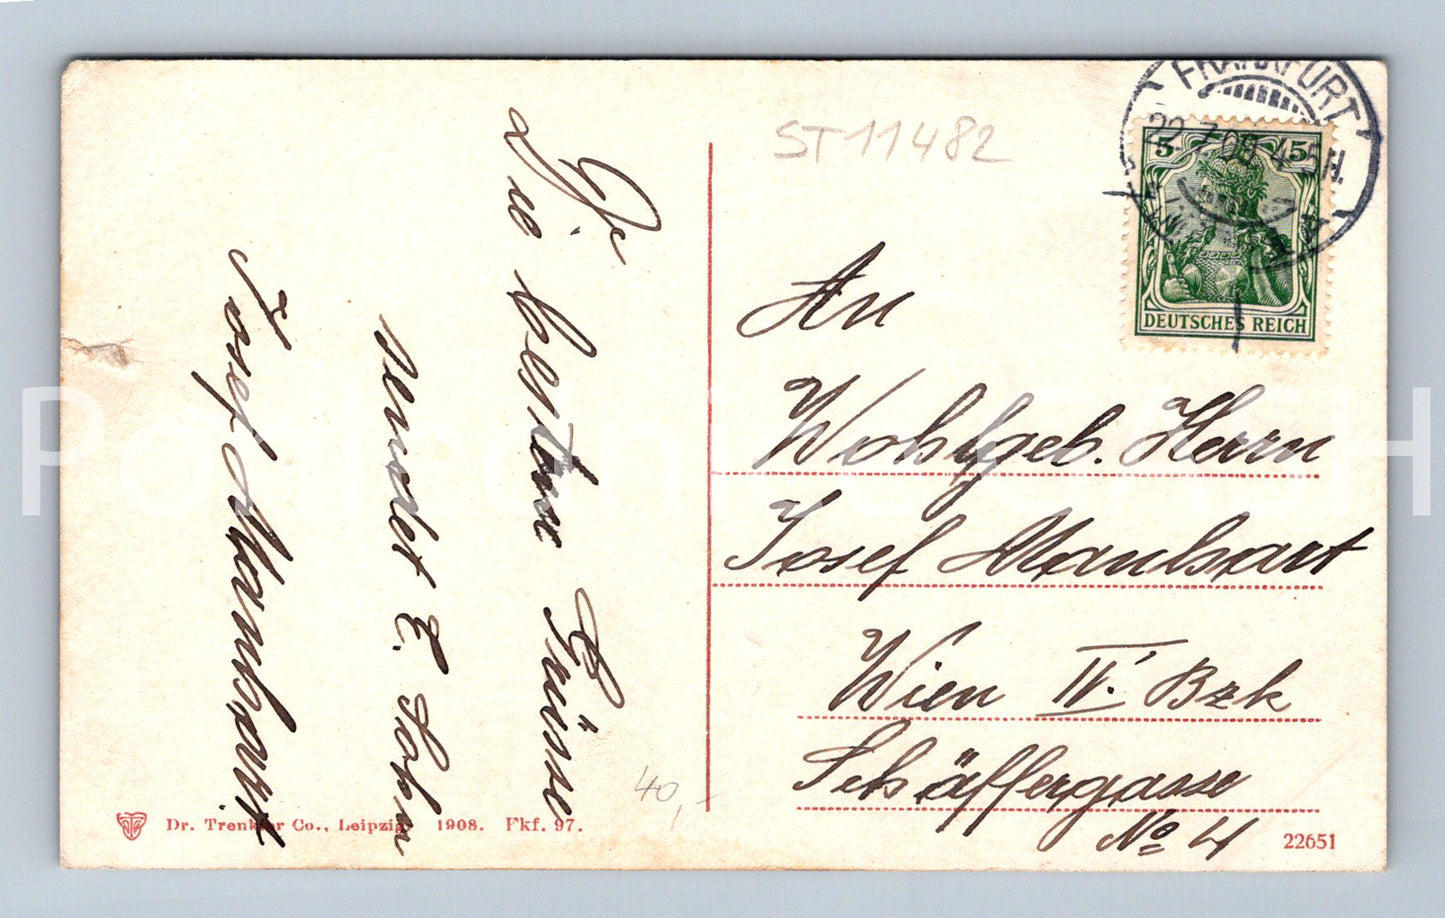 Ff.
Die besten Grüsse
sendet E. Sohn
Josef Manhart
ST11482
FRANKFURT
5 5
DEUTSCHES REICH
An
Wohlgeb. Herrn
Josef Manhart
Wien IV. Bzk
Schäffergasse
No 4
40,-
Dr. Trenkler Co., Leipzig. 1908. Fkf. 97.
22651